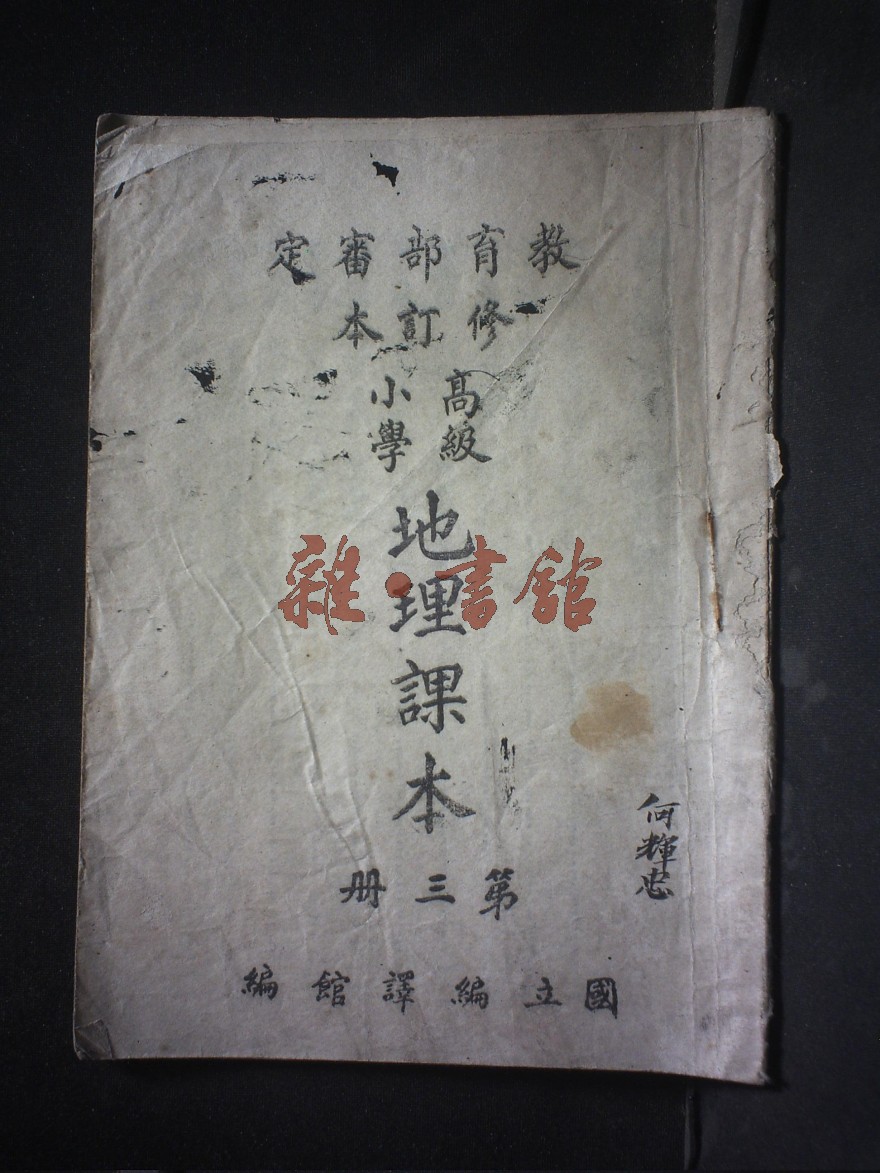 教育部審定
修訂本
高級
小學
地理課本
第三冊
國立編譯館編
何輝忠
雜·書館